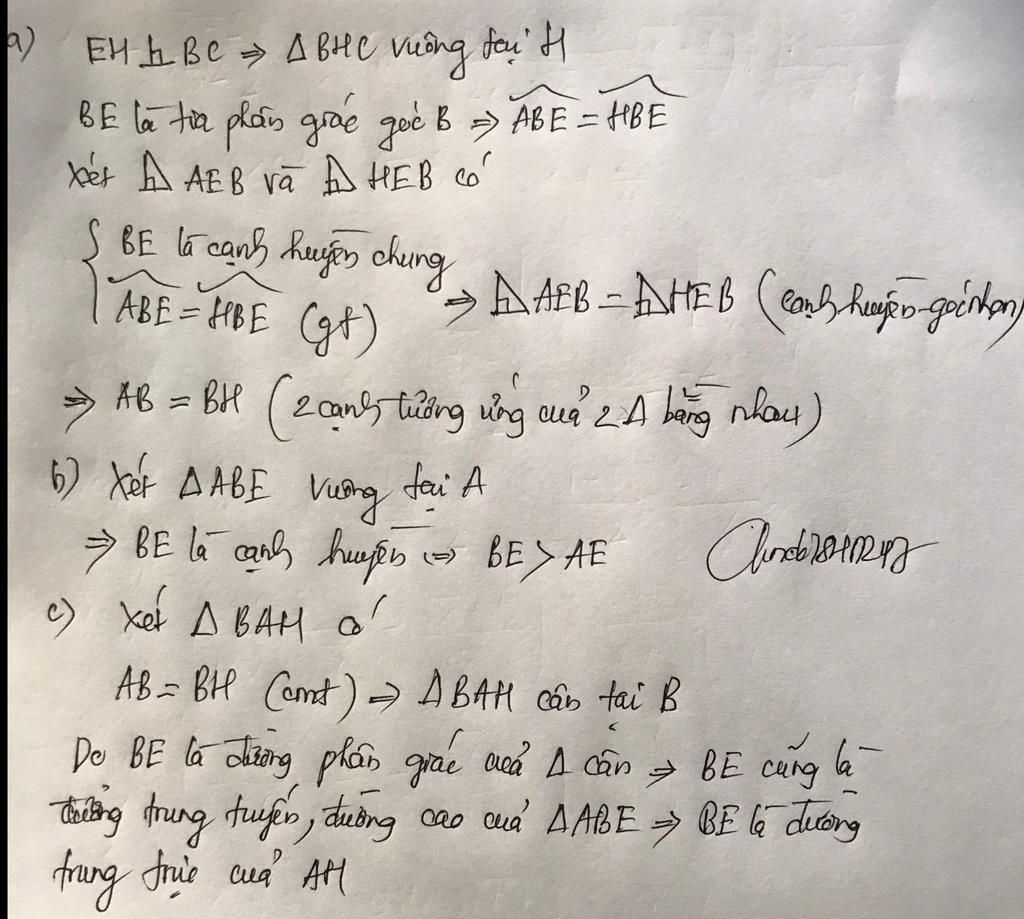 a) EH ⊥ BC ⇒ Δ BHC vuông tại H
BE là tia phân giác góc B ⇒ \widehat{ABE} = \widehat{HBE}
Xét ⊿ AEB và ⊿ HEB có
{ BE là cạnh huyền chung
\widehat{ABE} = \widehat{HBE} (gt) ⇒ ⊿ AEB = ⊿ HEB (cạnh huyền-góc nhọn)
⇒ AB = BH (2 cạnh tương ứng của 2 Δ bằng nhau)
b) Xét Δ ABE vuông tại A
⇒ BE là cạnh huyền ⇒ BE > AE
c) Xét Δ BAH có
AB = BH (cmt) ⇒ Δ BAH cân tại B
Do BE là đường phân giác của Δ cân ⇒ BE cũng là
đường trung tuyến, đường cao của Δ ABE ⇒ BE là đường
trung trực của AH